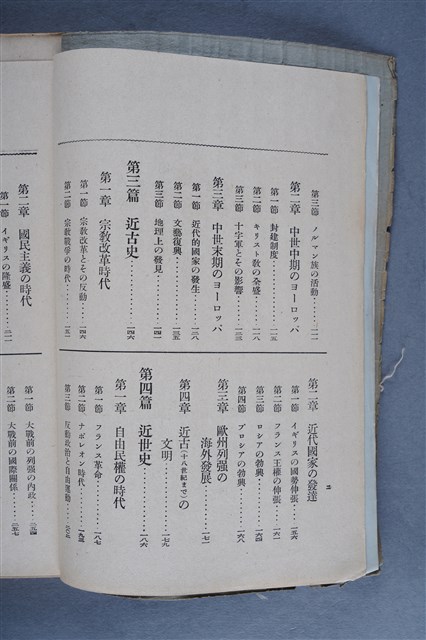 第三節 ノルマン族の活動………一一一
第二章 中世中期のヨーロッパ
第一節 封建制度………一一五
第二節 キリスト教の全盛………一一八
第三節 十字軍とその影響………一二三
第三章 中世末期のヨーロッパ
第一節 近代的國家の發生………一二八
第二節 文藝復興………一三五
第三節 地理上の發見………一四一
第三篇 近古史………一四六
第一章 宗教改革時代
第一節 宗教改革とその反動………一四六
第二節 宗教戰爭の時代………一五一
第二章 近代國家の發達
第一節 イギリスの國勢伸張………一五六
第二節 フランス王權の伸張………一六一
第三節 ロシアの勃興………一六四
第四節 プロシアの勃興………一六八
第三章 歐州列强の
海外發展………一七一
第四章 近古(十八世紀まで)の
文明………一七九
第四篇 近世史………一八六
第一章 自由民權の時代
第一節 フランス革命………一八七
第二節 ナポレオン時代………一九三
第三節 反動政治と自由運動
二
第二章 國民主義の時代
第一節 イギリスの隆盛
第一節 大戰前の列强の內政………二五四
第二節 大戰前の國際關係………二五七